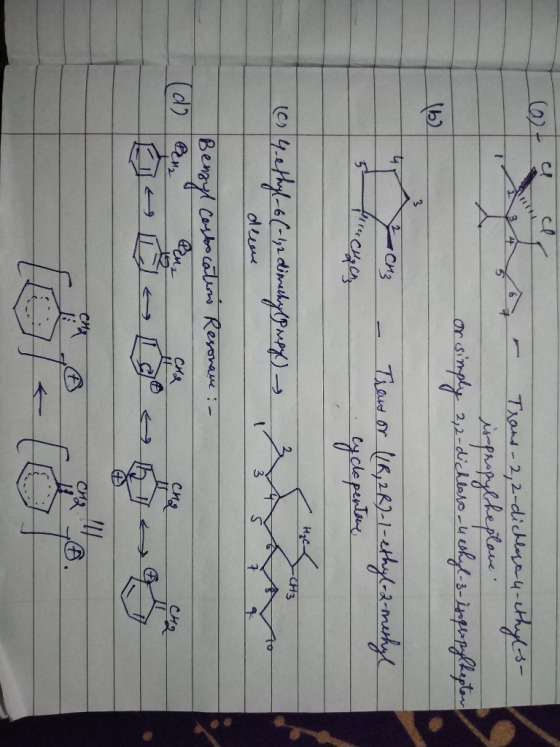 (a) -
Cl
Cl
1
2
3
4
5
6
7
- Trans-2,2-dichloro-4-ethyl-3-
isopropylheptane.
or simply 2,2-dichloro-4-ethyl-3-isopropylheptane
(b)
1
2
3
4
5
CH3
CH2CH3
- Trans or (1R,2R)-1-ethyl-2-methyl
cyclopentane
(c) 4-ethyl-6(-1,2dimethylpropyl) →
decane
1
2
3
4
5
6
7
8
9
10
H3C
CH3
Benzyl Carbocation Resonance :-
(d)
⊕CH2 ↔ ⊕CH2 ↔ CH2 ⊕ ↔ CH2 ⊕ ↔ CH2 ⊕
[ CH2 ] ⊕ ← [ CH2 ] ⊕.